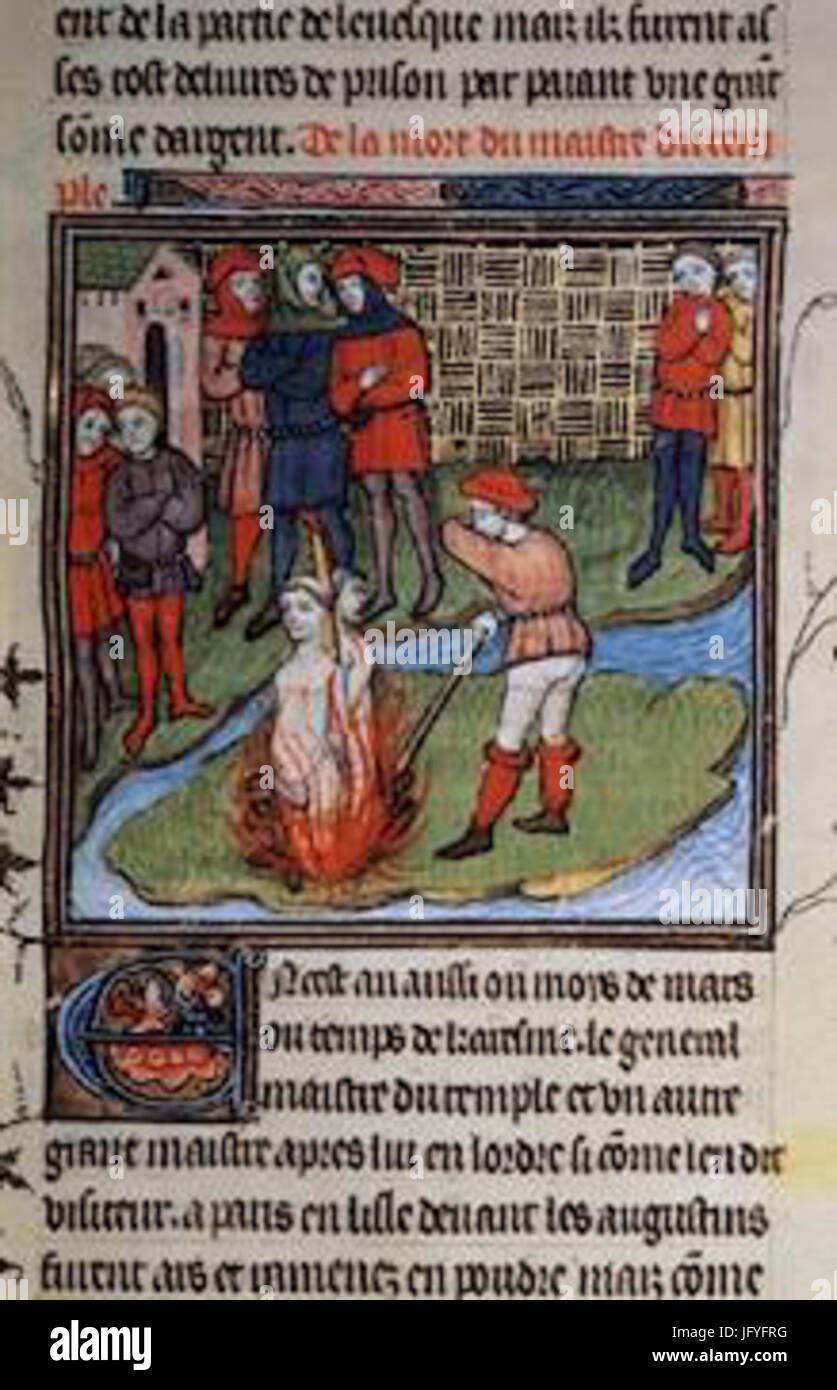 ent de la partie de leuesque mais ilz furent as
ses tost deliures de prison par paiant vne grāt
sōme dargent. De la mort du maistre du tem
ple
En cest an aussi ou moys de mars
ou temps de karesme. le general
maistre du temple et vn autre
grant maistre apres lui en lordre si cōme len dit
visiteur. a paris en lisle deuant les augustins
furent ars et ramenez en poudre mais cōme
alamy stock photo
JFYFRG
www.alamy.com